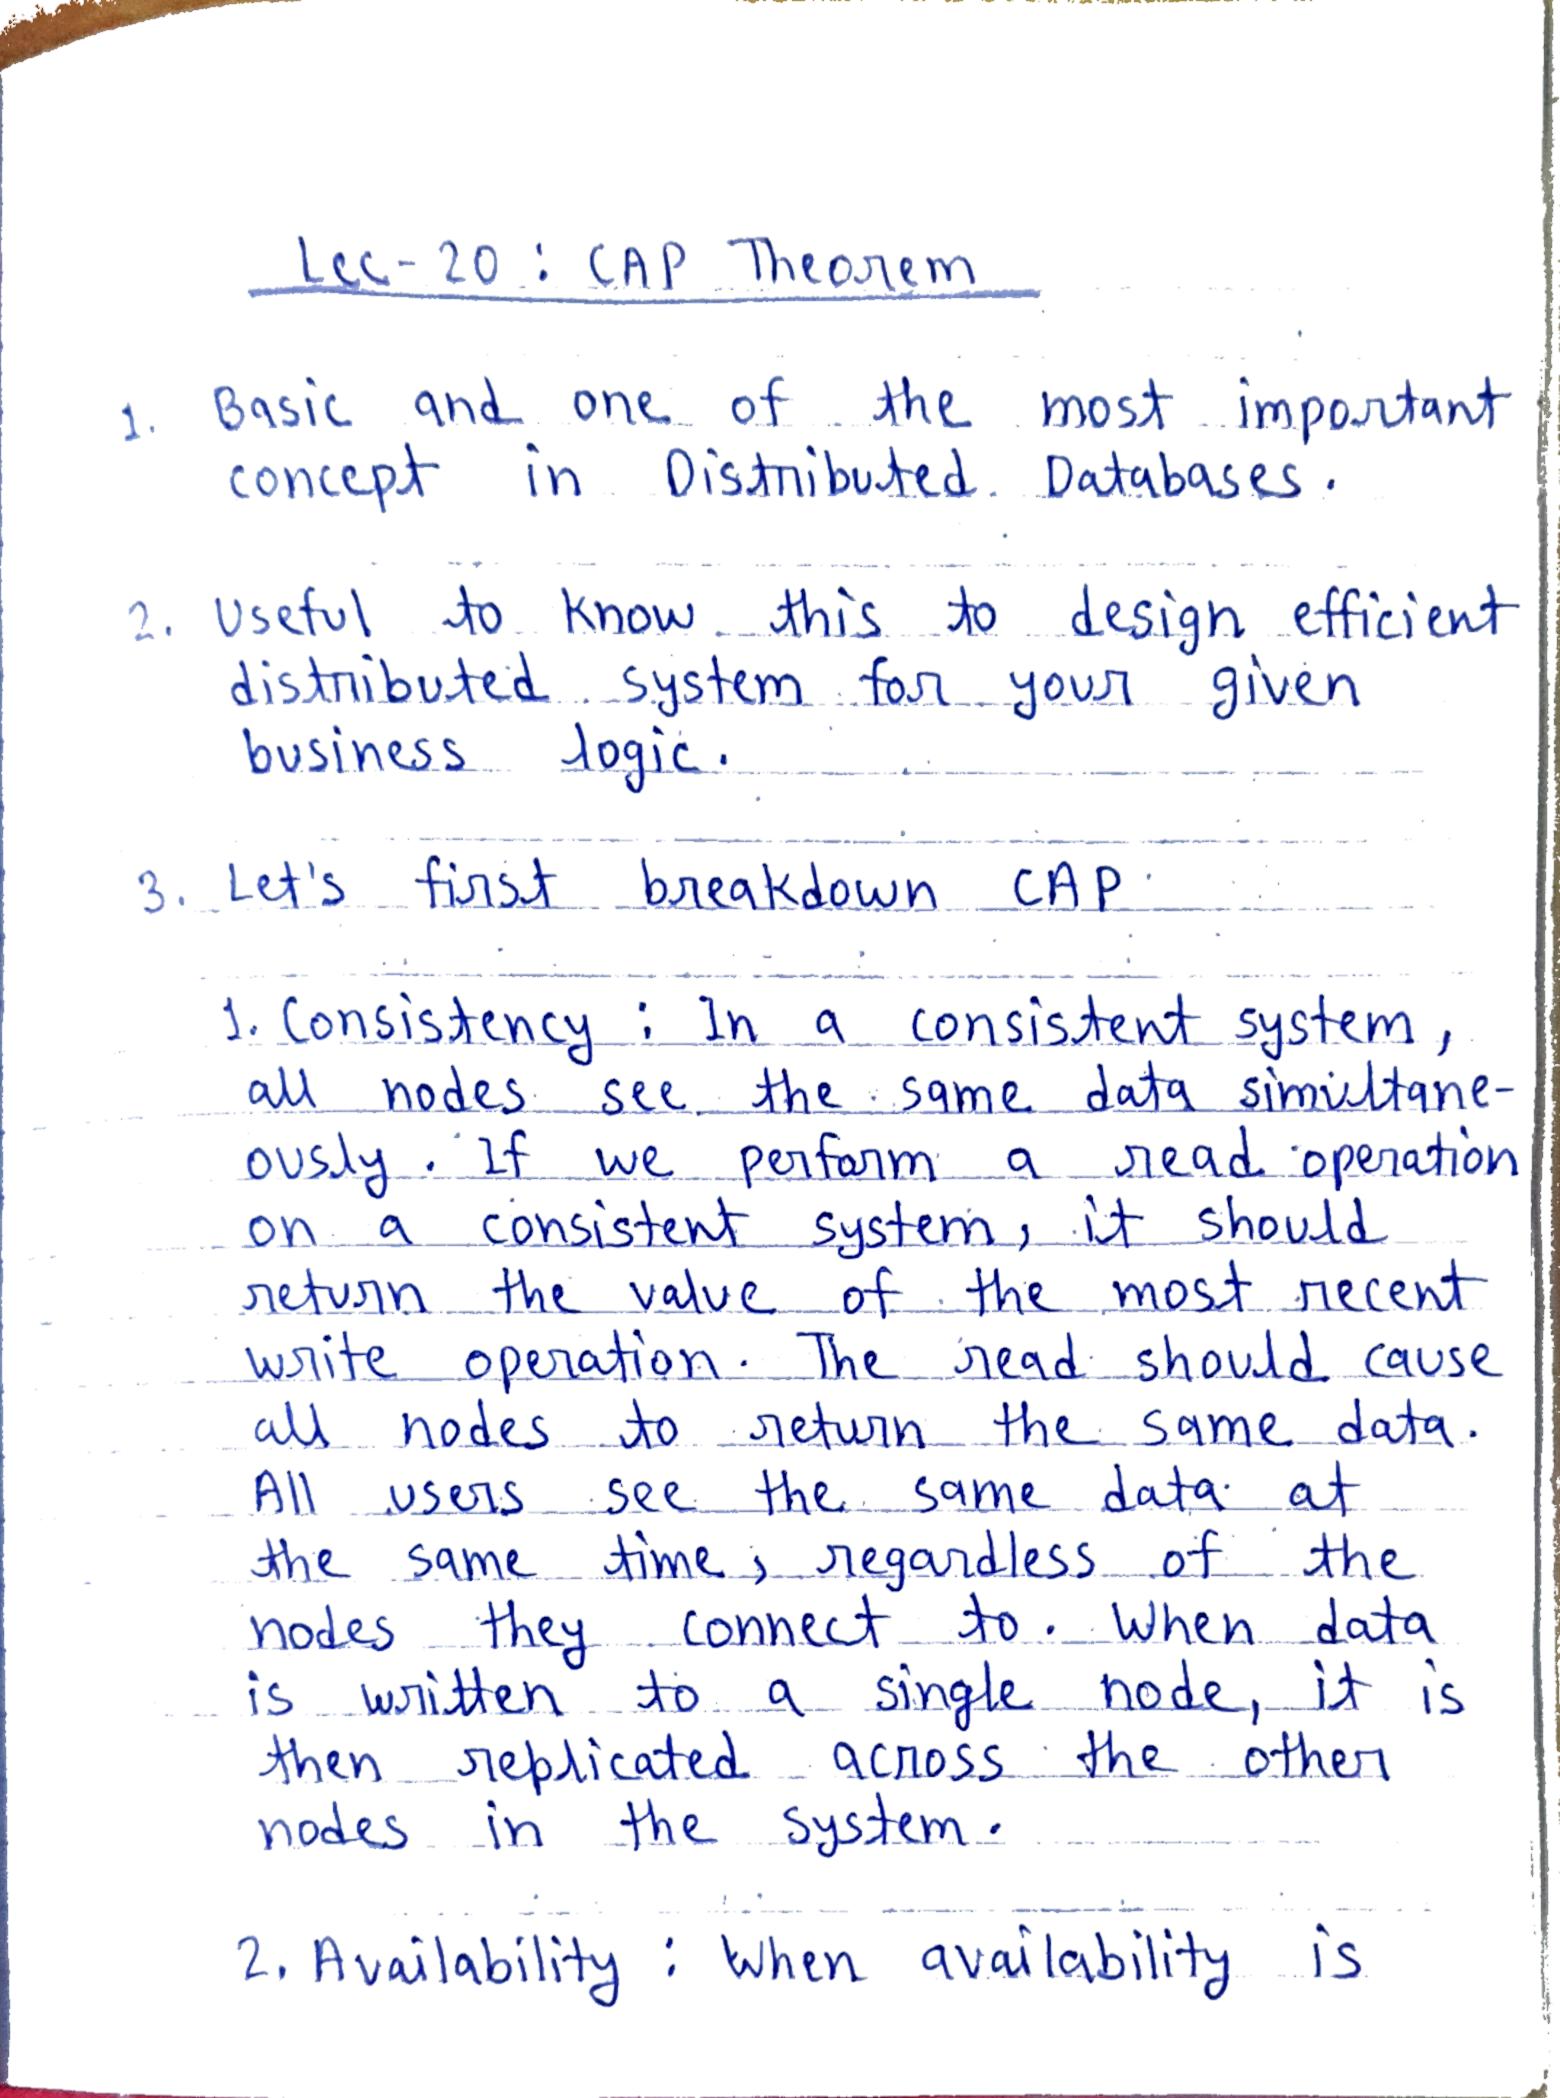 Lec-20 : CAP Theorem
1. Basic and one of the most important
concept in Distributed Databases.
2. Useful to know this to design efficient
distributed system for your given
business logic.
3. Let's first breakdown CAP
1. Consistency : In a consistent system,
all nodes see the same data simultane-
ously. If we perform a read operation
on a consistent system, it should
return the value of the most recent
write operation. The read should cause
all nodes to return the same data.
All users see the same data at
the same time, regardless of the
nodes they connect to. When data
is written to a single node, it is
then replicated across the other
nodes in the system.
2. Availability : When availability is